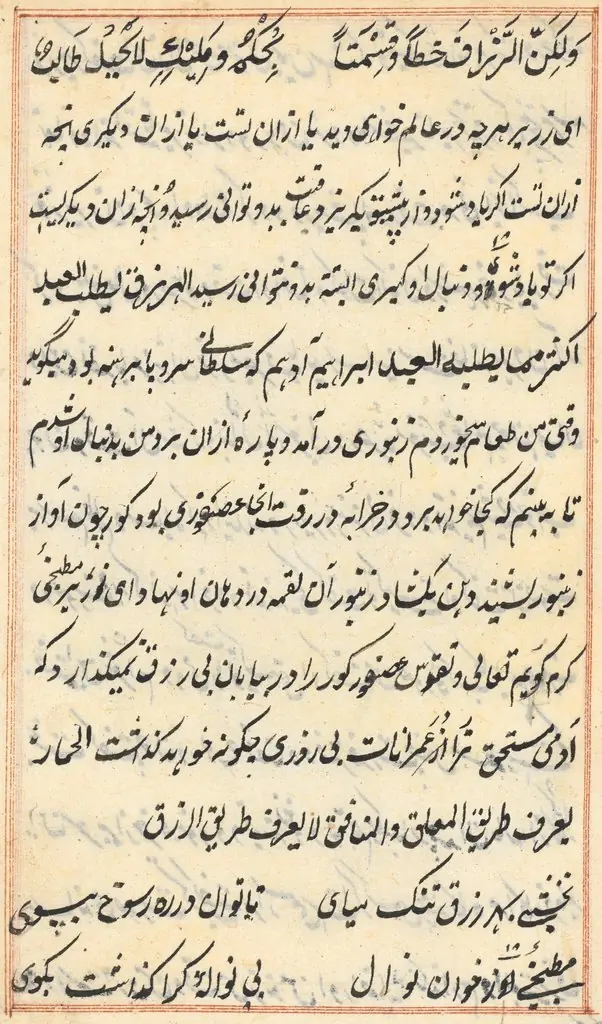 ولكنّ الرزاق خطّا وقسمتا بحكم و مليك لا بحيل طالب
ای زریر هرچه در عالم خواهی دید یا ازان تست یا ازان دیگری انچه
ازان تست اگر باد شود و از پیش تو بگریزد عاقبت بدو توانی رسید و انچه ازان دیگریست
اگر تو باد شوی و دنبال او گیری البته بدو نتوانی رسید الرزق لیطلب العبد
اکثر مما یطلبه العبد ابراهیم آدهم که سلطانی سر و پا برهنه بود میگوید
وقتی من طعام میخوردم زنبوری در آمد و پارهٔ ازان برد من بدنبال او شدم
تا به بینم که کجا خواهد برد در خرابهٔ در رفت انجا عصفوری بود کور چون آواز
زنبور بشنید دهن بگشاد زنبور آن لقمه در دهان او نهاد ای از مطبخی
کرم گویم تعالی و تقدس عصفور کور را در بیابان بی رزق نمیگذارد که
آدمی مستحق ترا از عمرانات بی روزی چگونه خواهد گذاشت الحمار
یعرف طریق المعلق والمنافق لا یعرف طریق الرزق
نخشبی بهر رزق تنگ میای تا توان در ره رسوخ بپوی
مطبخی از خوان نوال بی نواله کرا گذاشت بگوی